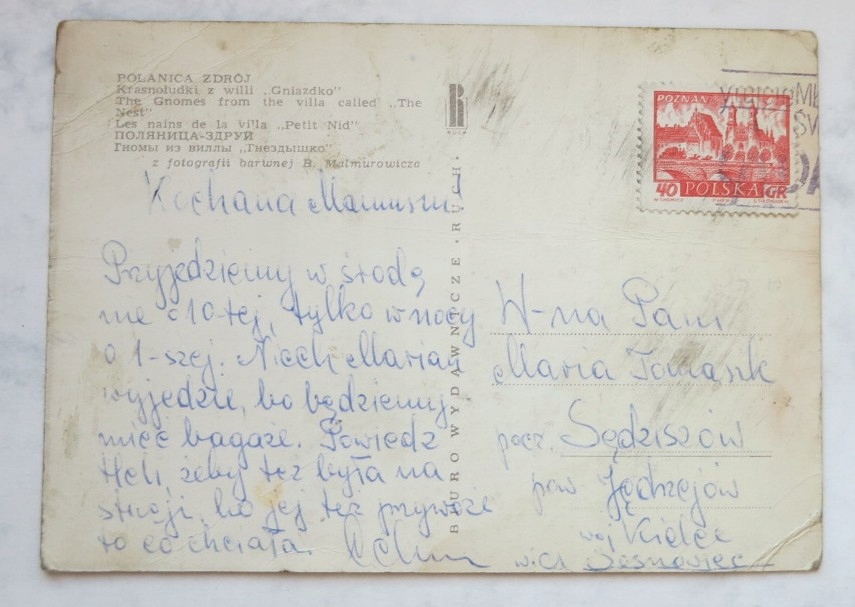 POLANICA ZDRÓJ
Krasnoludki z willi „Gniazdko”
The Gnomes from the villa called „The
Nest”
Les nains de la villa „Petit Nid”
ПОЛЯНИЦА-ЗДРУЙ
Гномы из виллы „Гнездышко”
z fotografii barwnej B. Malmurowicza
Kochana Mamusiu!
Przyjedziemy w środę
nie o 10-tej, tylko w nocy
o 1-szej. Niech Marian
wyjedzie, bo będziemy
mieć bagaże. Powiedz
Heli, żeby też była na
stacji, bo jej też przywiozę
to co chciała.
BIURO WYDAWNICZE „RUCH”
RUCH
POZNAŃ
40 POLSKA GR
W-na Pani
Maria Tomasik
pocz. Sędziszów
pow Jędrzejów
woj Kielce
Sosnowiec